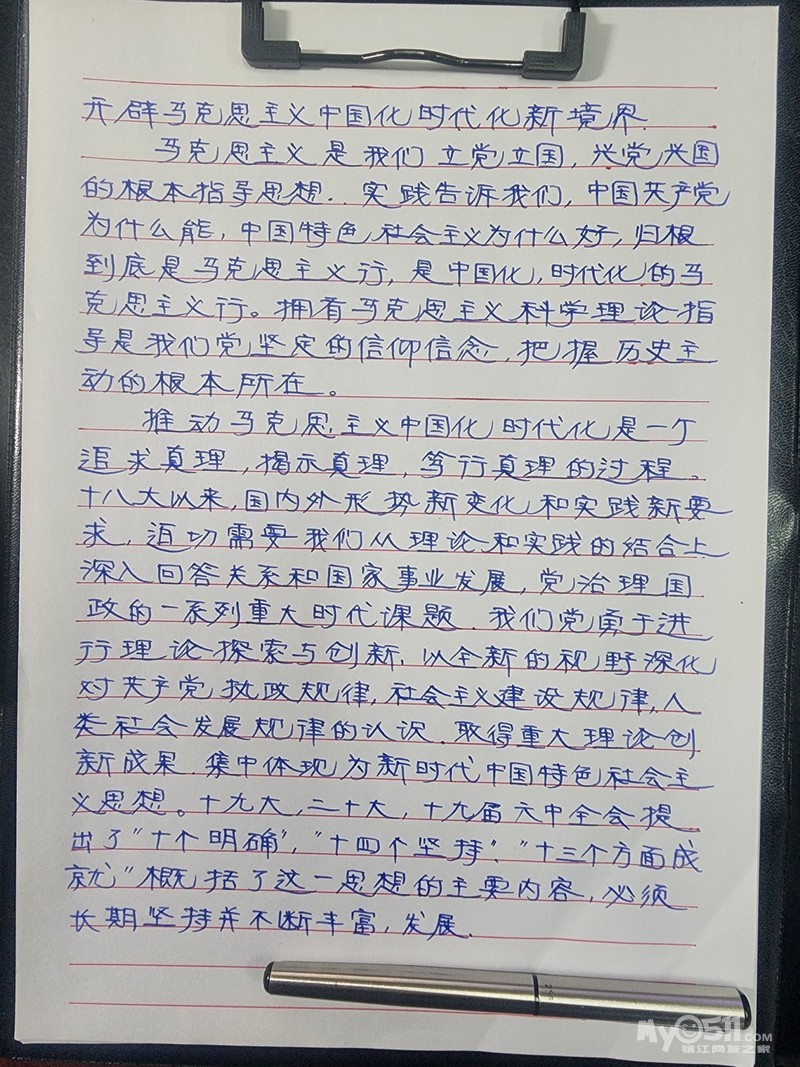 开辟马克思主义中国化时代化新境界.
马克思主义是我们立党立国,兴党兴国
的根本指导思想..实践告诉我们,中国共产党
为什么能,中国特色社会主义为什么好,归根
到底是马克思主义行,是中国化,时代化的马
克思主义行。拥有马克思主义科学理论指
导是我们党坚定的信仰信念,把握历史主
动的根本所在。
推动马克思主义中国化时代化是一个
追求真理,揭示真理,笃行真理的过程。
十八大以来,国内外形势新变化和实践新要
求,迫切需要我们从理论和实践的结合上
深入回答关系和国家事业发展,党治理国
政的一系列重大时代课题.我们党勇于进
行理论探索与创新,以全新的视野深化
对共产党执政规律,社会主义建设规律,人
类社会发展规律的认识.取得重大理论创
新成果.集中体现为新时代中国特色社会主
义思想。十九大,二十大,十九届六中全会提
出了"十个明确","十四个坚持"."十三个方面成
就"概括了这一思想的主要内容,必须
长期坚持并不断丰富,发展.
My0511.COM
镇江网友之家